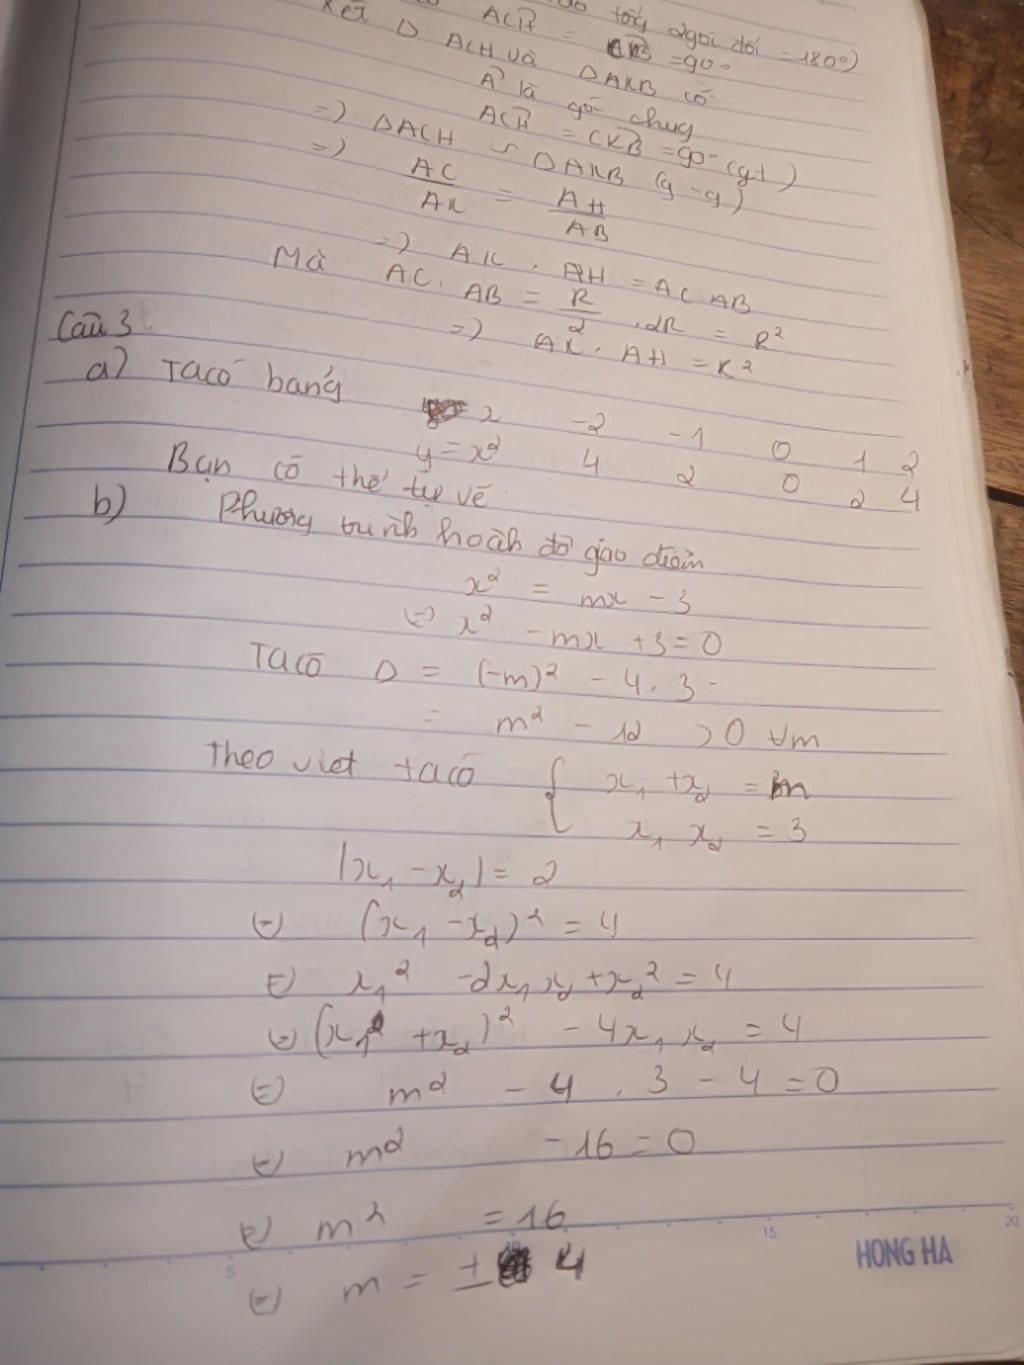 Xét ACH = CKB = 90° do tổng 2 góc đối = 180°)
Δ ACH và Δ AKB có
A là góc chung
ACH = CKB = 90° (gt)
=> ΔACH ∽ ΔAKB (g-g)
=> AC/AK = AH/AB
=> AK . AH = AC . AB
Mà AC . AB = R/2 . 2R = R²
=> AK . AH = R²
Câu 3
a) Ta có bảng
x -2 -1 0 1 2
y = x² 4 2 0 2 4
Bạn có thể tự vẽ
b) Phương trình hoành độ giao điểm
x² = mx - 3
(=) x² - mx + 3 = 0
Ta có Δ = (-m)² - 4 . 3
= m² - 12 > 0 ∀m
Theo viet ta có { x₁ + x₂ = m
x₁ x₂ = 3
|x₁ - x₂| = 2
(=) (x₁ - x₂)² = 4
(=) x₁² - 2x₁x₂ + x₂² = 4
(=) (x₁ + x₂)² - 4x₁x₂ = 4
(=) m² - 4 . 3 - 4 = 0
(=) m² - 16 = 0
(=) m² = 16
(=) m = ± 4
5 10 15 20
HONG HA